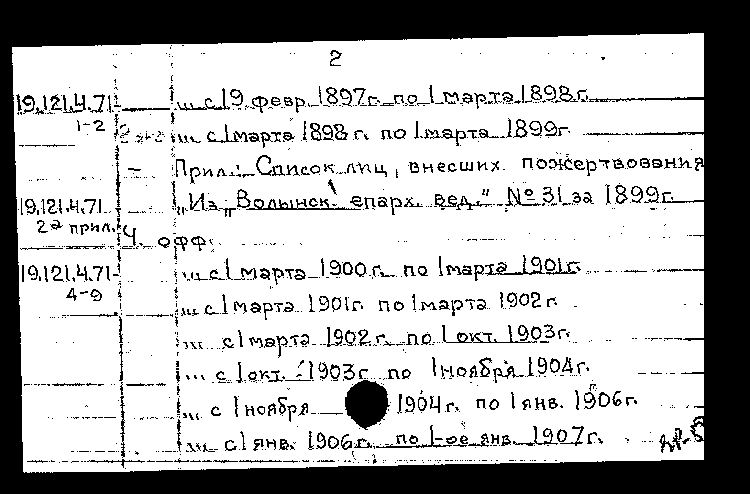 2
19.121.4.71- ... с 19 февр. 1897г. по 1 марта 1898г.
1-2 ... с 1 марта 1898 г. по 1 марта 1899г.
– Прил.: Список лиц, внесших пожертвования
19.121.4.71 „Из „Волынск. епарх. вед." № 31 за 1899г.
2а прил. Ч. офф.
19.121.4.71- ... с 1 марта 1900г. по 1 марта 1901г.
4-9 ... с 1 марта 1901г. по 1 марта 1902г.
... с 1 марта 1902г. по 1 окт. 1903г.
... с 1 окт. 1903г. по 1 ноября 1904г.
... с 1 ноября 1904г. по 1 янв. 1906г.
... с 1 янв. 1906г. по 1-ое янв. 1907г.